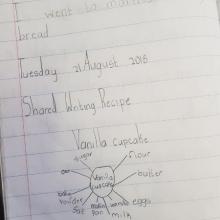 I went to
bread
Tuesday 21 August 2018
Shared Writing Recipe
Vanilla cupcake
sugar
flour
butter
Vanilla
cupcake
eggs
milk
vanilla
muffin
pan
baking
powder